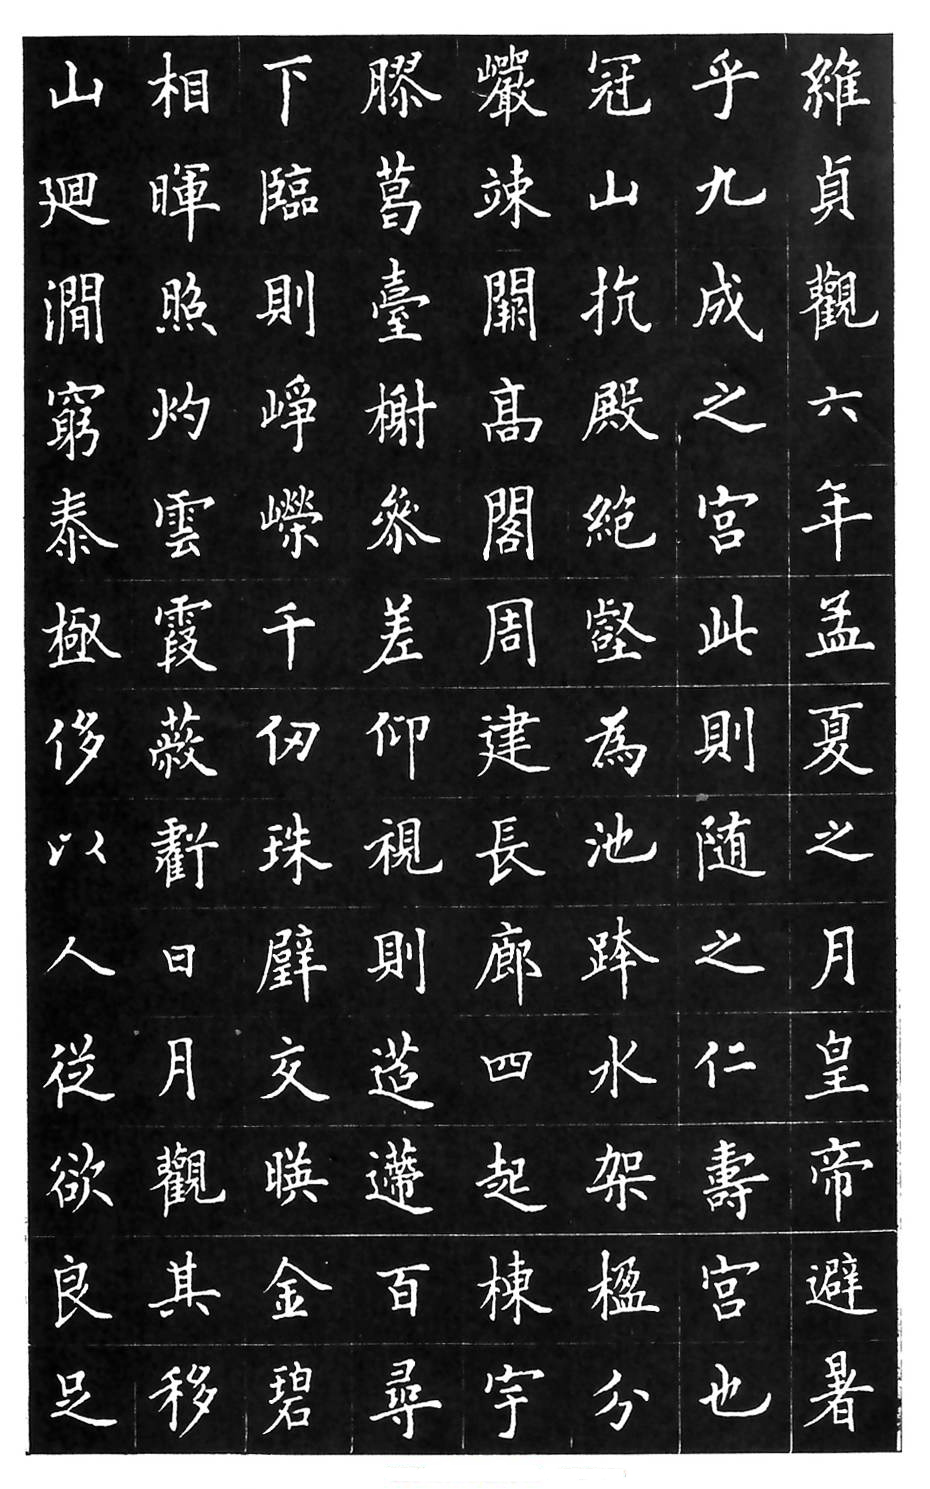 維貞觀六年孟夏之月皇帝避暑
乎九成之宮此則随之仁壽宮也
冠山抗殿絶壑為池跨水架楹分
巖竦闕高閣周建長廊四起棟宇
膠葛臺榭參差仰視則迢遰百尋
下臨則崢嶸千仞珠壁交暎金碧
相暉照灼雲霞蔽虧日月觀其移
山迴澗窮泰極侈以人從欲良足